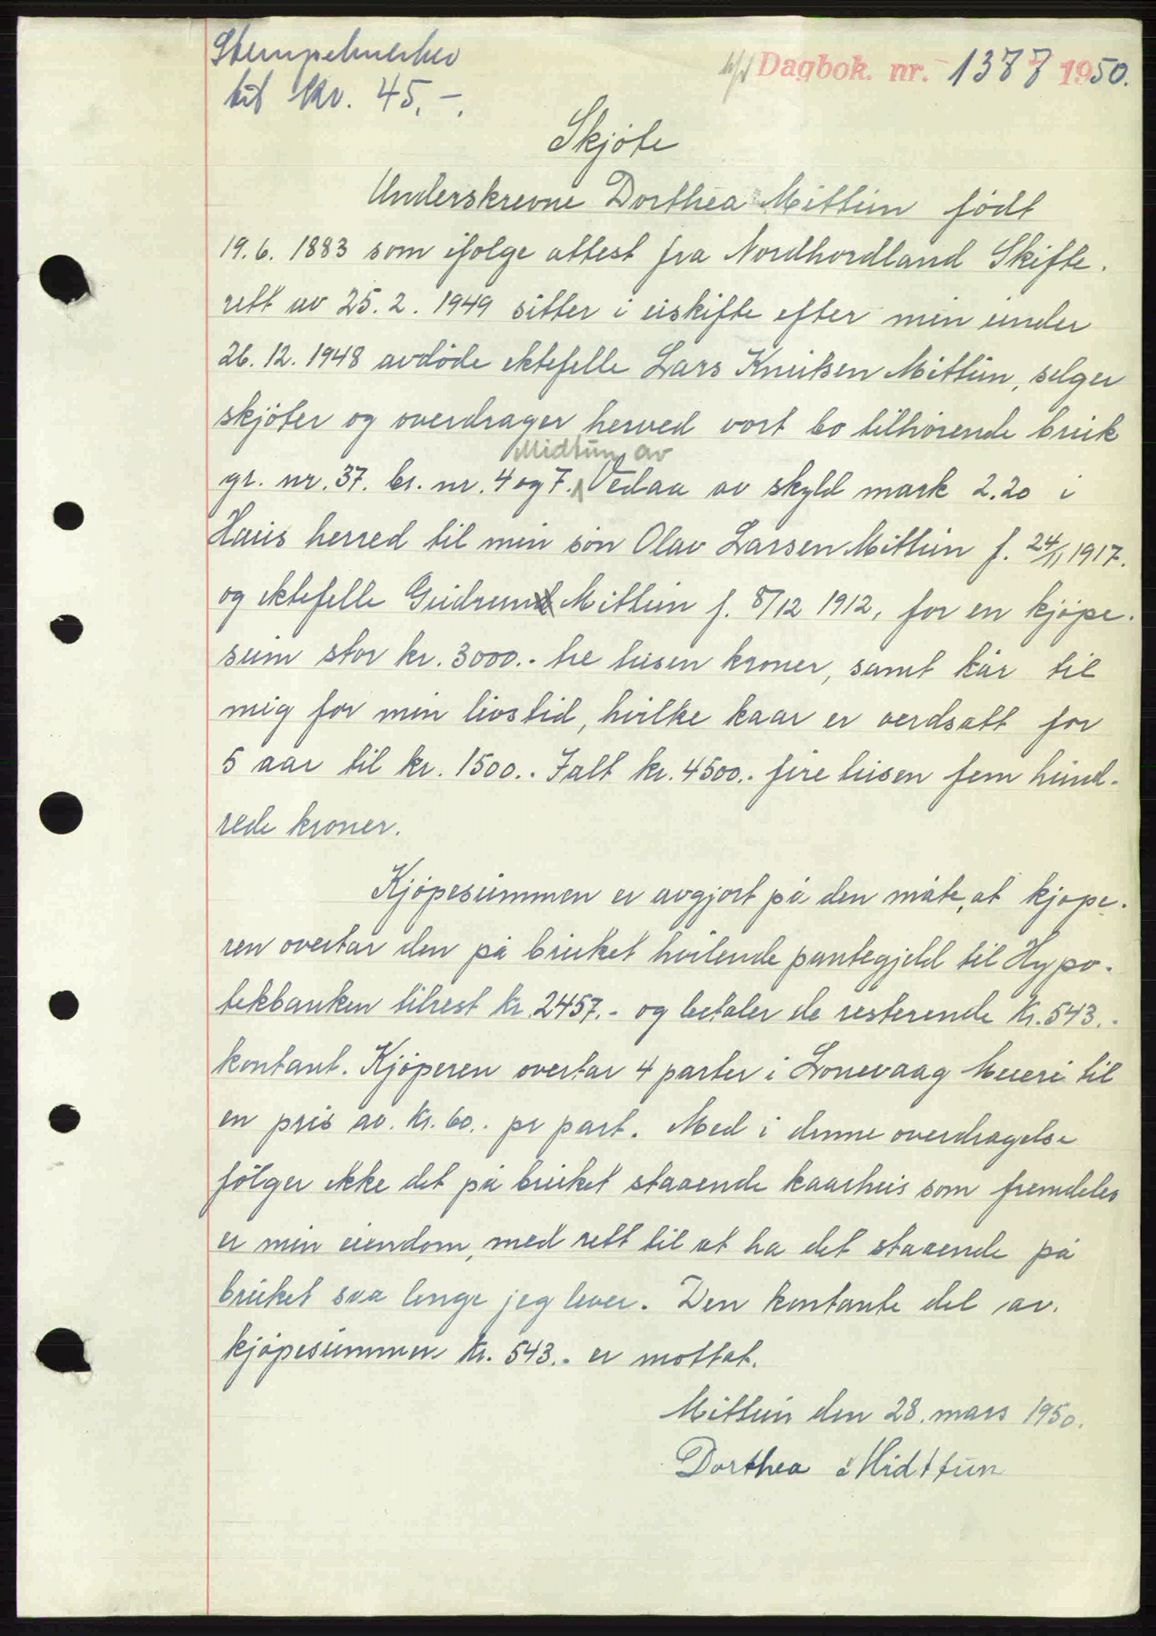 Stempelmerker
til kr. 45.-.
Dagbok. nr. 1377 1950.
Skjøte
Underskrevne Dorthea Mittun født
19.6. 1883 som ifølge attest fra Nordhordland Skifte-
rett av 25.2. 1949 sitter i uskifte efter min under
26.12. 1948 avdøde ektefelle Lars Knutsen Mittun, selger
skjøter og overdrager herved vort bo tilhørende bruk
Midtun av
gr. nr. 37. br. nr. 4 og 7. Vedaa av skyld mark 2.20 i
Haus herred til min søn Olav Larsen Mittun f. 24/11 1917.
og ektefelle Gudrun Mittun f. 8/12 1912, for en kjøpe-
sum stor kr. 3000.- tre tusen kroner, samt kår til
mig for min livstid, hvilke kaar er verdsatt for
5 aar til kr. 1500.- Ialt kr. 4500.- fire tusen fem hund-
rede kroner.
Kjøpesummen er avgjort på den måte, at kjøpe-
ren overtar den på bruket hvilende pantegjeld til Hypo-
tekbanken tilrest kr. 2457.- og betaler de resterende kr. 543.-
kontant. Kjøperen overtar 4 parter i Lonevaag Meieri til
en pris av. kr. 60.- pr part. Med i denne overdragelse
følger ikke det på bruket staaende kaarhus som fremdeles
er min eiendom, med rett til at ha det staaende på
bruket saa lenge jeg lever. Den kontante del av.
kjøpesummen kr. 543.- er mottat.
Mittun den 28. mars 1950.
Dorthea Midttun